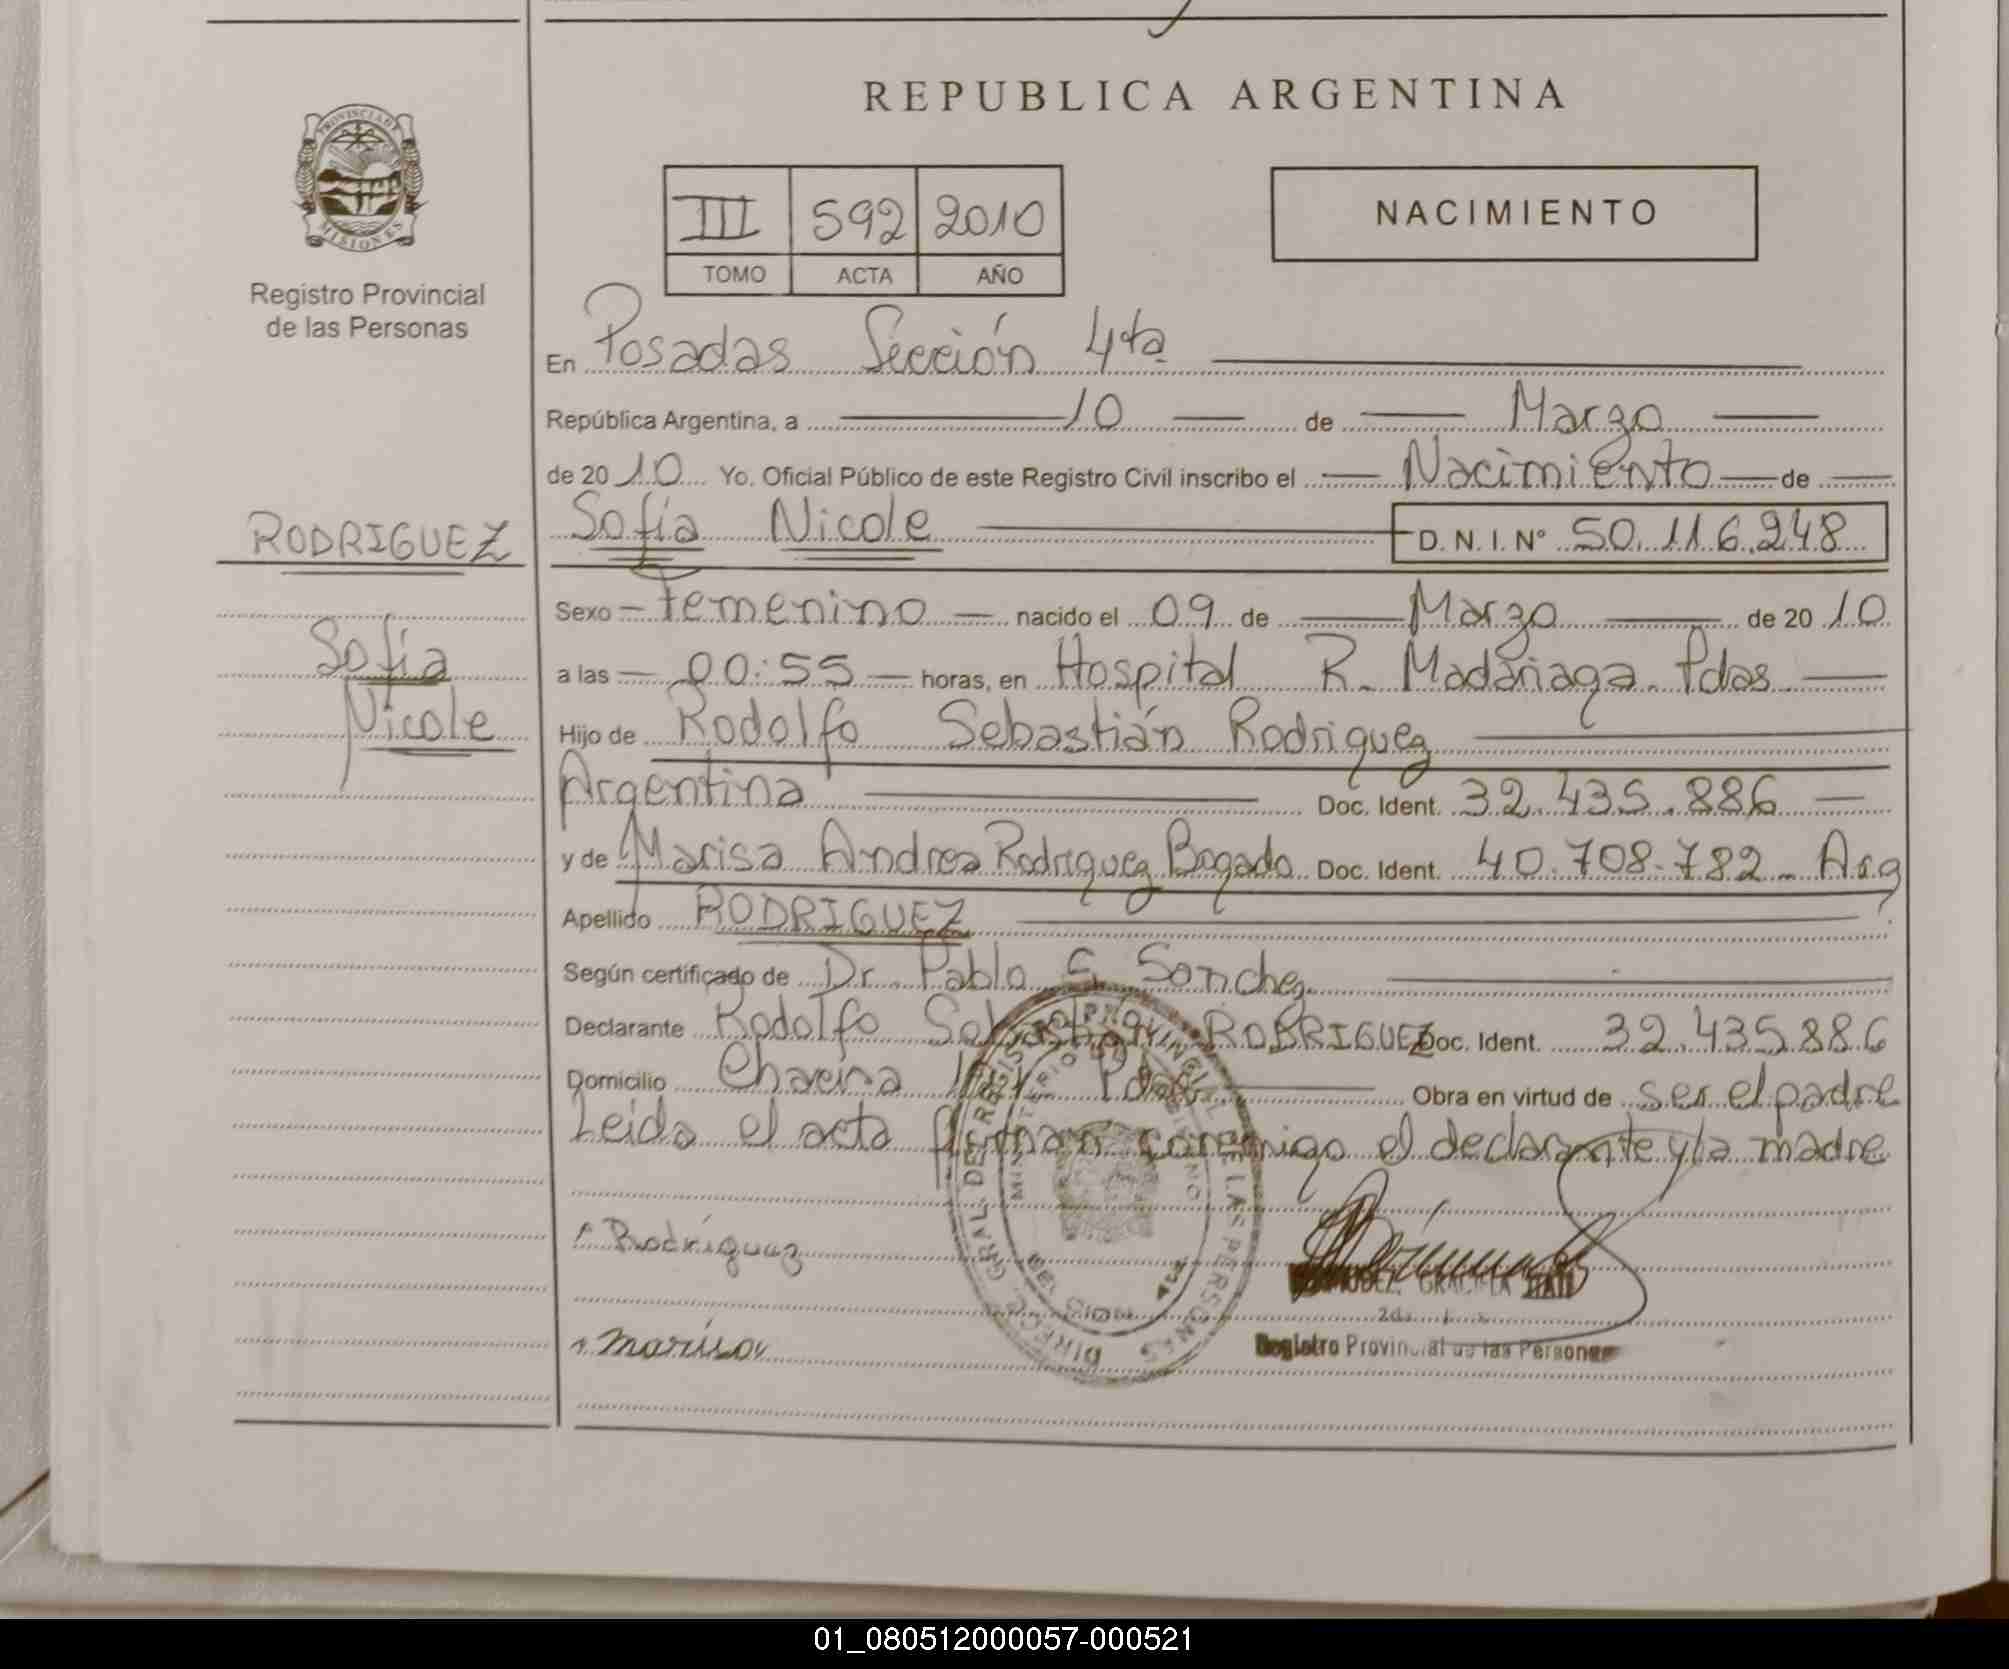 REPUBLICA ARGENTINA
PROVINCIA DE
MISIONES
Registro Provincial
de las Personas
III 592 2010
TOMO ACTA AÑO
NACIMIENTO
En Posadas Sección 4ta
República Argentina, a 10 de Marzo
de 2010 Yo. Oficial Público de este Registro Civil inscribo el Nacimiento de
RODRIGUEZ
Sofía Nicole D. N. I. N° 50.116.248
Sexo Femenino nacido el 09 de Marzo de 2010
Sofía
Nicole
a las 00:55 horas, en Hospital R. Madariaga Pdas
Hijo de Rodolfo Sebastián Rodriguez
Argentina Doc. Ident. 32.435.886
y de Marisa Andrea Rodriguez Bogado Doc. Ident. 40.708.782 Arg
Apellido RODRIGUEZ
Según certificado de Dr. Pablo Sanchez
Declarante Rodolfo Sebastián RODRIGUEZ Doc. Ident. 32.435886
Domicilio Chacra Pdas Obra en virtud de ser el padre
Leida el acta firman conmigo el declarante y la madre
Rodríguez
GRACIELA
marisa
Registro Provincial de las Personas
DIRECC. GRAL. DE REGISTRO PROVINCIAL DE LAS PERSONAS
MINISTERIO DE GOBIERNO
MISIONES
01_080512000057-000521